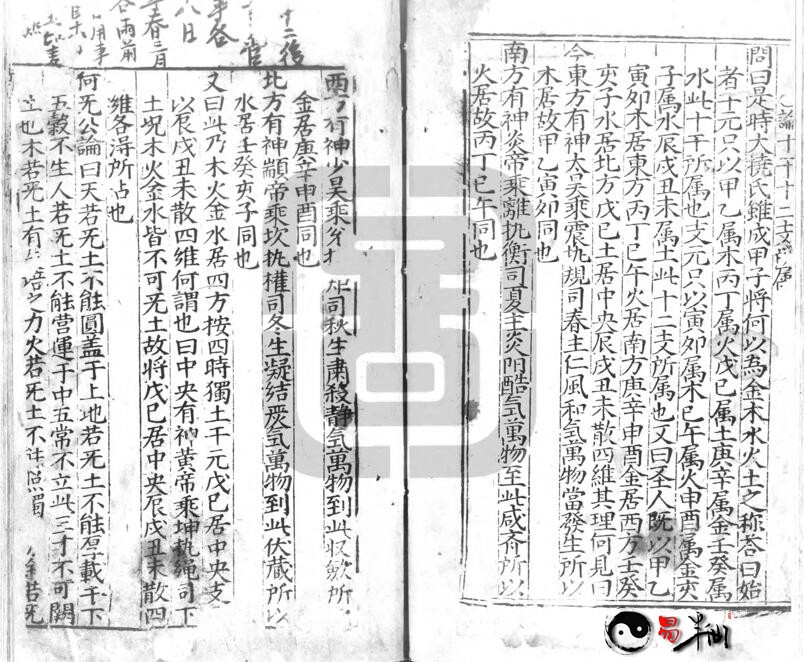 論十干十二支所属
問曰是時大撓氏雖成甲子将何以為金木水火土之称荅曰始
者十元只以甲乙属木丙丁属火戊己属土庚辛属金壬癸属
水此十干所属也支元只以寅夘属木巳午属火申酉属金亥
子属水辰戌丑未属土此十二支所属也又曰圣人既以甲乙
寅夘木居東方丙丁巳午火居南方庚辛申酉金居西方壬癸
亥子水居北方戊己土居中央辰戌丑未散四維其理何見曰
今東方有神太昊乘震执規司春主仁風和氣萬物當發生所以
木居故甲乙寅夘同也
南方有神炎帝乘離执衡司夏主炎陽酷氣萬物至此咸齐所以
火居故丙丁巳午同也
酉方有神少昊乘兑执矩司秋生肅殺静氣萬物到此収歛所
金居庚辛申酉同也
北方有神顓帝乘坎执權司冬生凝结嚴氣萬物到此伏藏所以
水居壬癸亥子同也
又曰此乃木火金水居四方按四時獨土干元戊己居中央支
以辰戌丑未散四維何謂也曰中央有神黄帝乘坤执绳司下
土况木火金水皆不可无土故将戊己居中央辰戌丑未散四
維各淂所占也
何无公論曰天若无土不能圓盖于上地若无土不能厚載于下
五榖不生人若无土不能营運于中五常不立此三才不可闕
土也木若无土有培之力火若无土不 照 金若无
十二後
八日
春三月
谷雨前
用事
易半山